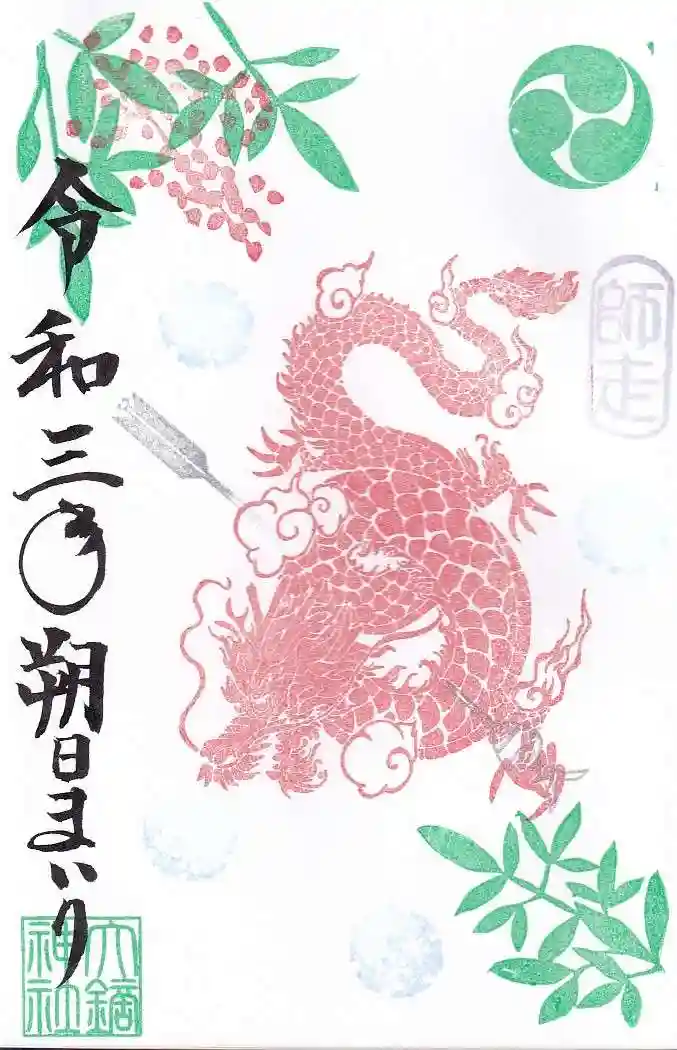 師走
令和三年朔日まいり
大鏑
神社